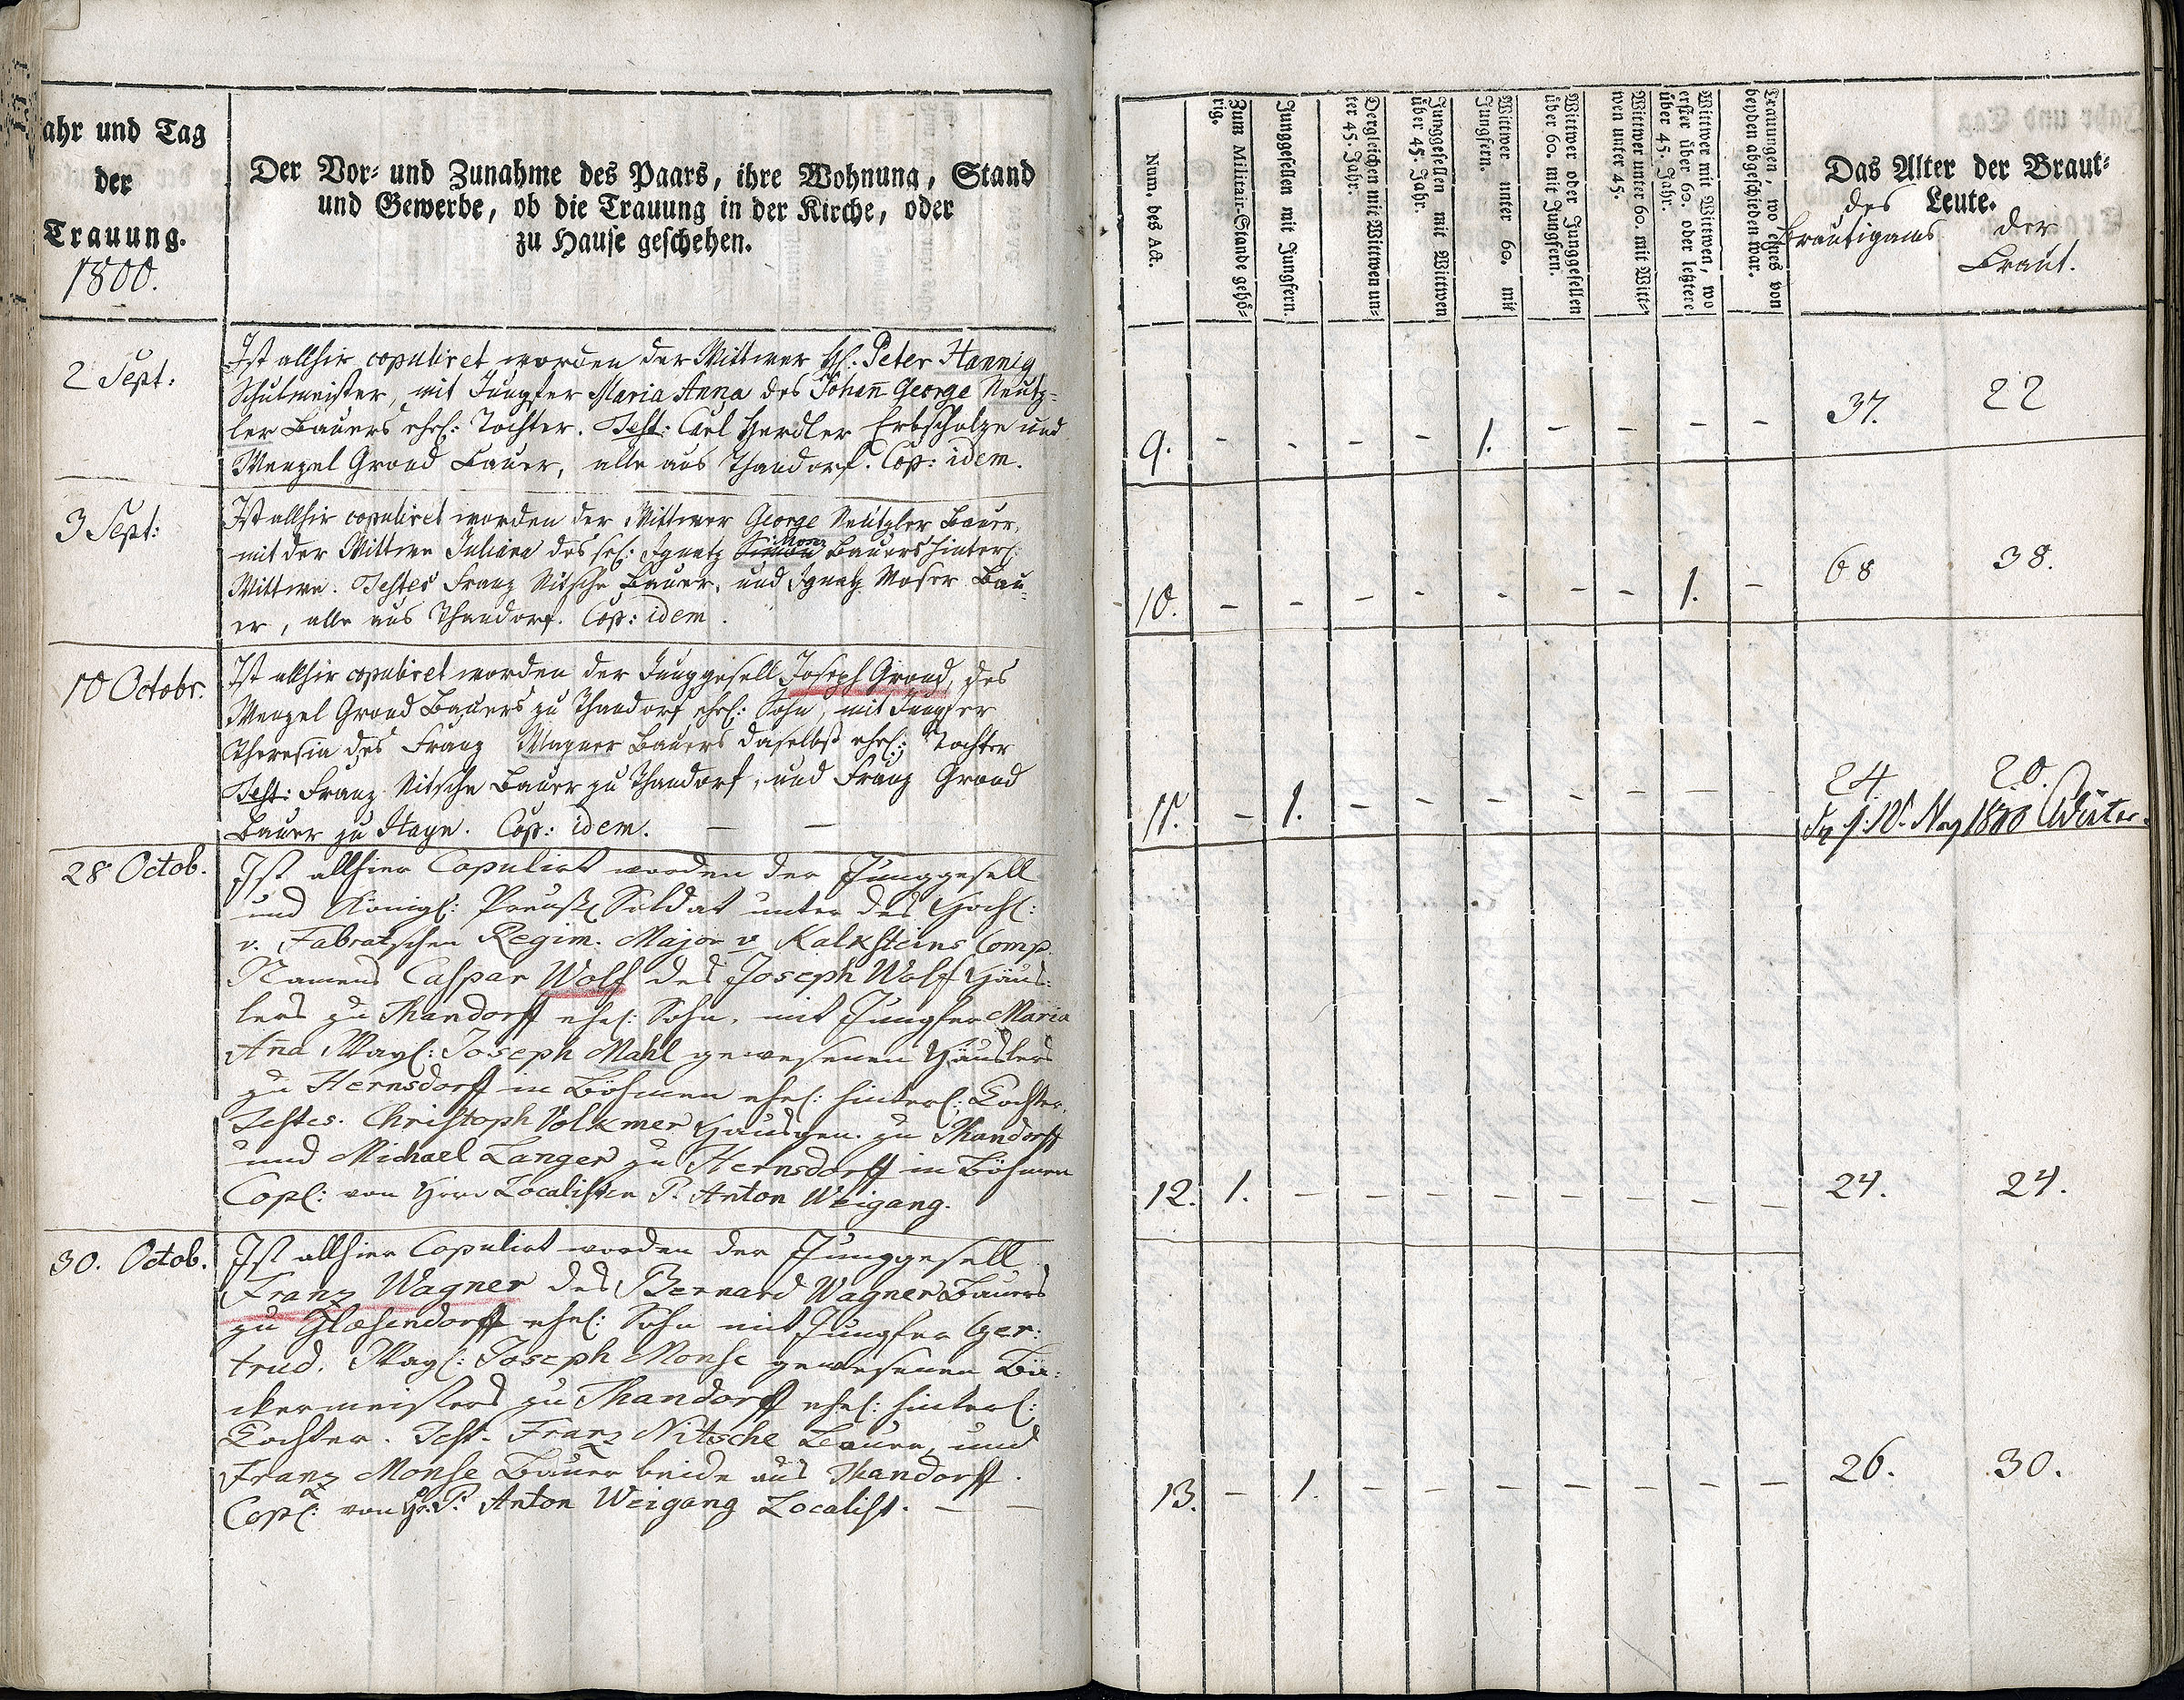 ahr und Tag
der
Trauung.
1800.
Der Vor- und Zunahme des Paars, ihre Wohnung, Stand
und Gewerbe, ob die Trauung in der Kirche, oder
zu Hause geschehen.
2 Sept:
Ist allhir copuliret worden der Wittwer H: Peter Hannig
Schulmeister, mit Jungfer Maria Anna des Johan̄ George Neutz-
ler Bauers ehel: Tochter. Test: Carl Herdler Erbscholze und
Wenzel Grond Bauer, alle aus Thandorf. Cop: idem.
3 Sept:
Ist allhir copuliret worden der Wittwer George Neutzler Bauer,
mit der Wittwe Juliana des sel: Ignatz Simon Moser Bauers hinterl:
Wittwe. Testes Franz Nitsche Bauer, und Ignatz Moser Bau-
er, alle aus Thandorf. Cop: idem.
10 Octobr.
Ist allhir copuliret worden der Junggesell Joseph Grond, des
Wenzel Grond Bauers zu Thandorf ehel: Sohn, mit Jungfer
Theresia des Franz Wagner Bauers daselbst ehel: Tochter
Test: Franz Nitsche Bauer zu Thandorf, und Franz Grond
Bauer zu Stayn. Cop: idem. — —
28 Octob.
Ist allhier Copulirt worden der Junggesell
und Königl: Preuß Soldat unter des Hochl:
v. Fabratschen Regim. Major v Kalksteins Comp.
Namens Caspar Wolf des Joseph Wolf Häus-
lers zu Thandorff ehel: Sohn, mit Jungfer Maria
An̄a Weyl: Joseph Mahl gewesenen Häuslers
zu Hernsdorff in Böhmen ehel: hinterl: Tochter,
Testes. Christoph Volkmer Hausgen. zu Thandorff
und Michael Langer zu Hernsdorff in Böhmen
Copl: von Herr Localisten P. Anton Weigang.
30. Octob.
Ist allhier Copulirt worden der Junggesell
Franz Wagner des Bernard Wagner Bauers
zu Glæsendorff ehel: Sohn mit Jungfer Ger:
trud. Weyl: Joseph Monse gewesenen Bä:
ckermeisters zu Thandorff ehel: hinterl:
Tochter. Test. Franz Nitsche Bauer, und
Franz Monse Bauer beide aus Thandorff.
Copl: von H. P. Anton Weigang Localist. — —
Num. des Act.
Zum Militair-Stande gehö-
rig.
Junggesellen mit Jungfern.
Dergleichen mit Wittwen un-
ter 45. Jahr.
Junggesellen mit Wittwen
über 45. Jahr.
Wittwer unter 60. mit
Jungfern.
Wittwer oder Junggesellen
über 60. mit Jungfern.
Wittwer unter 60. mit Witt-
wen unter 45.
Wittwer mit Wittwen, wo
erster über 60. oder letztere
über 45. Jahr.
Trauungen, wo eines von
beyden abgeschieden war.
Das Alter der Braut-
Leute.
des Bräutigams
der Braut.
9. - - - - 1. - - - - 37. 22
10. - - - - - - - 1. - 68 38.
11. - 1. - - - - - - - 24. 20.
12. 1. - - - - - - - - 24. 24.
13. - 1. - - - - - - - 26. 30.